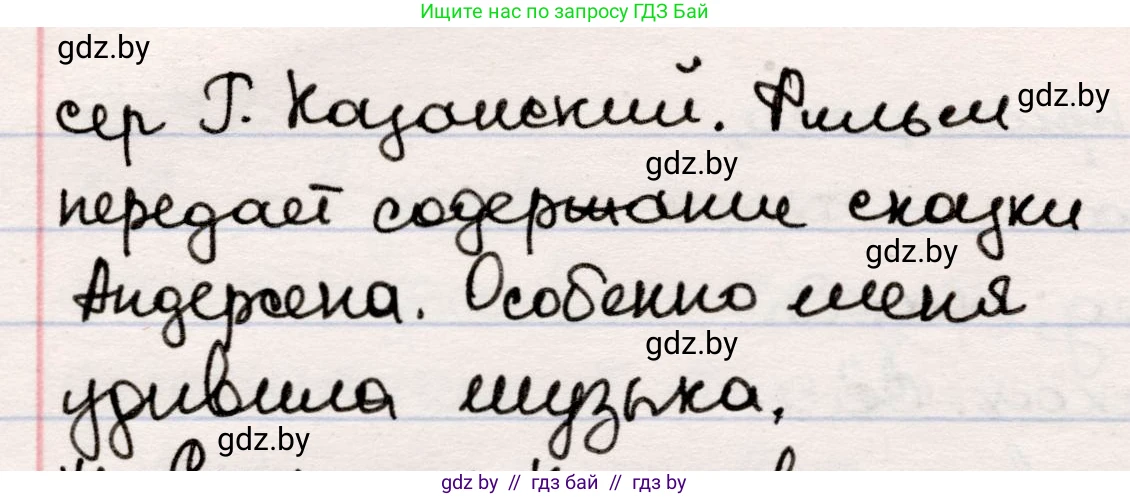 Ищите нас по запросу ГДЗ Бай
gdz.by
сер Г. Казанский. Фильм gdz.by
gdz.by
передает содержание сказки
gdz.by
Андерсена. Особенно меня
gdz.by
удивила музыка,
gdz.by
gdz by // гдз бай // гдз by